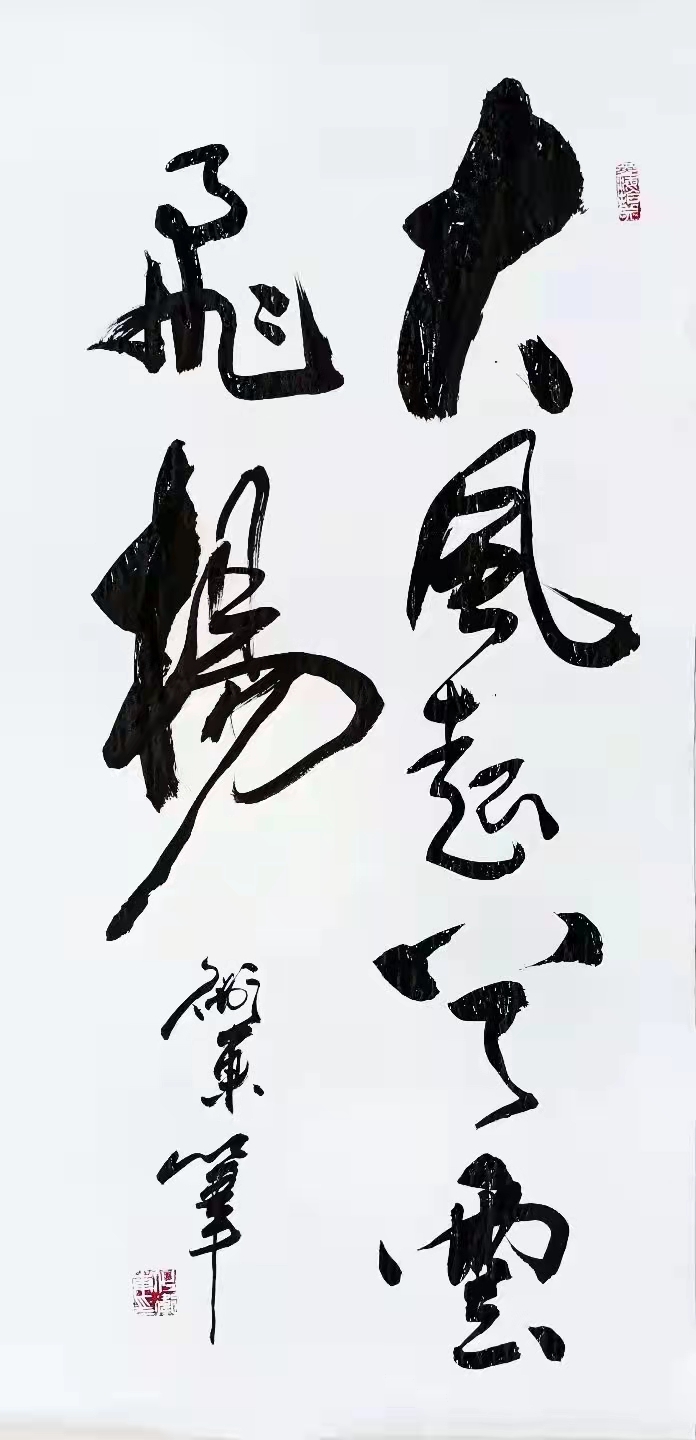 大風起兮雲
飛揚
衛東筆